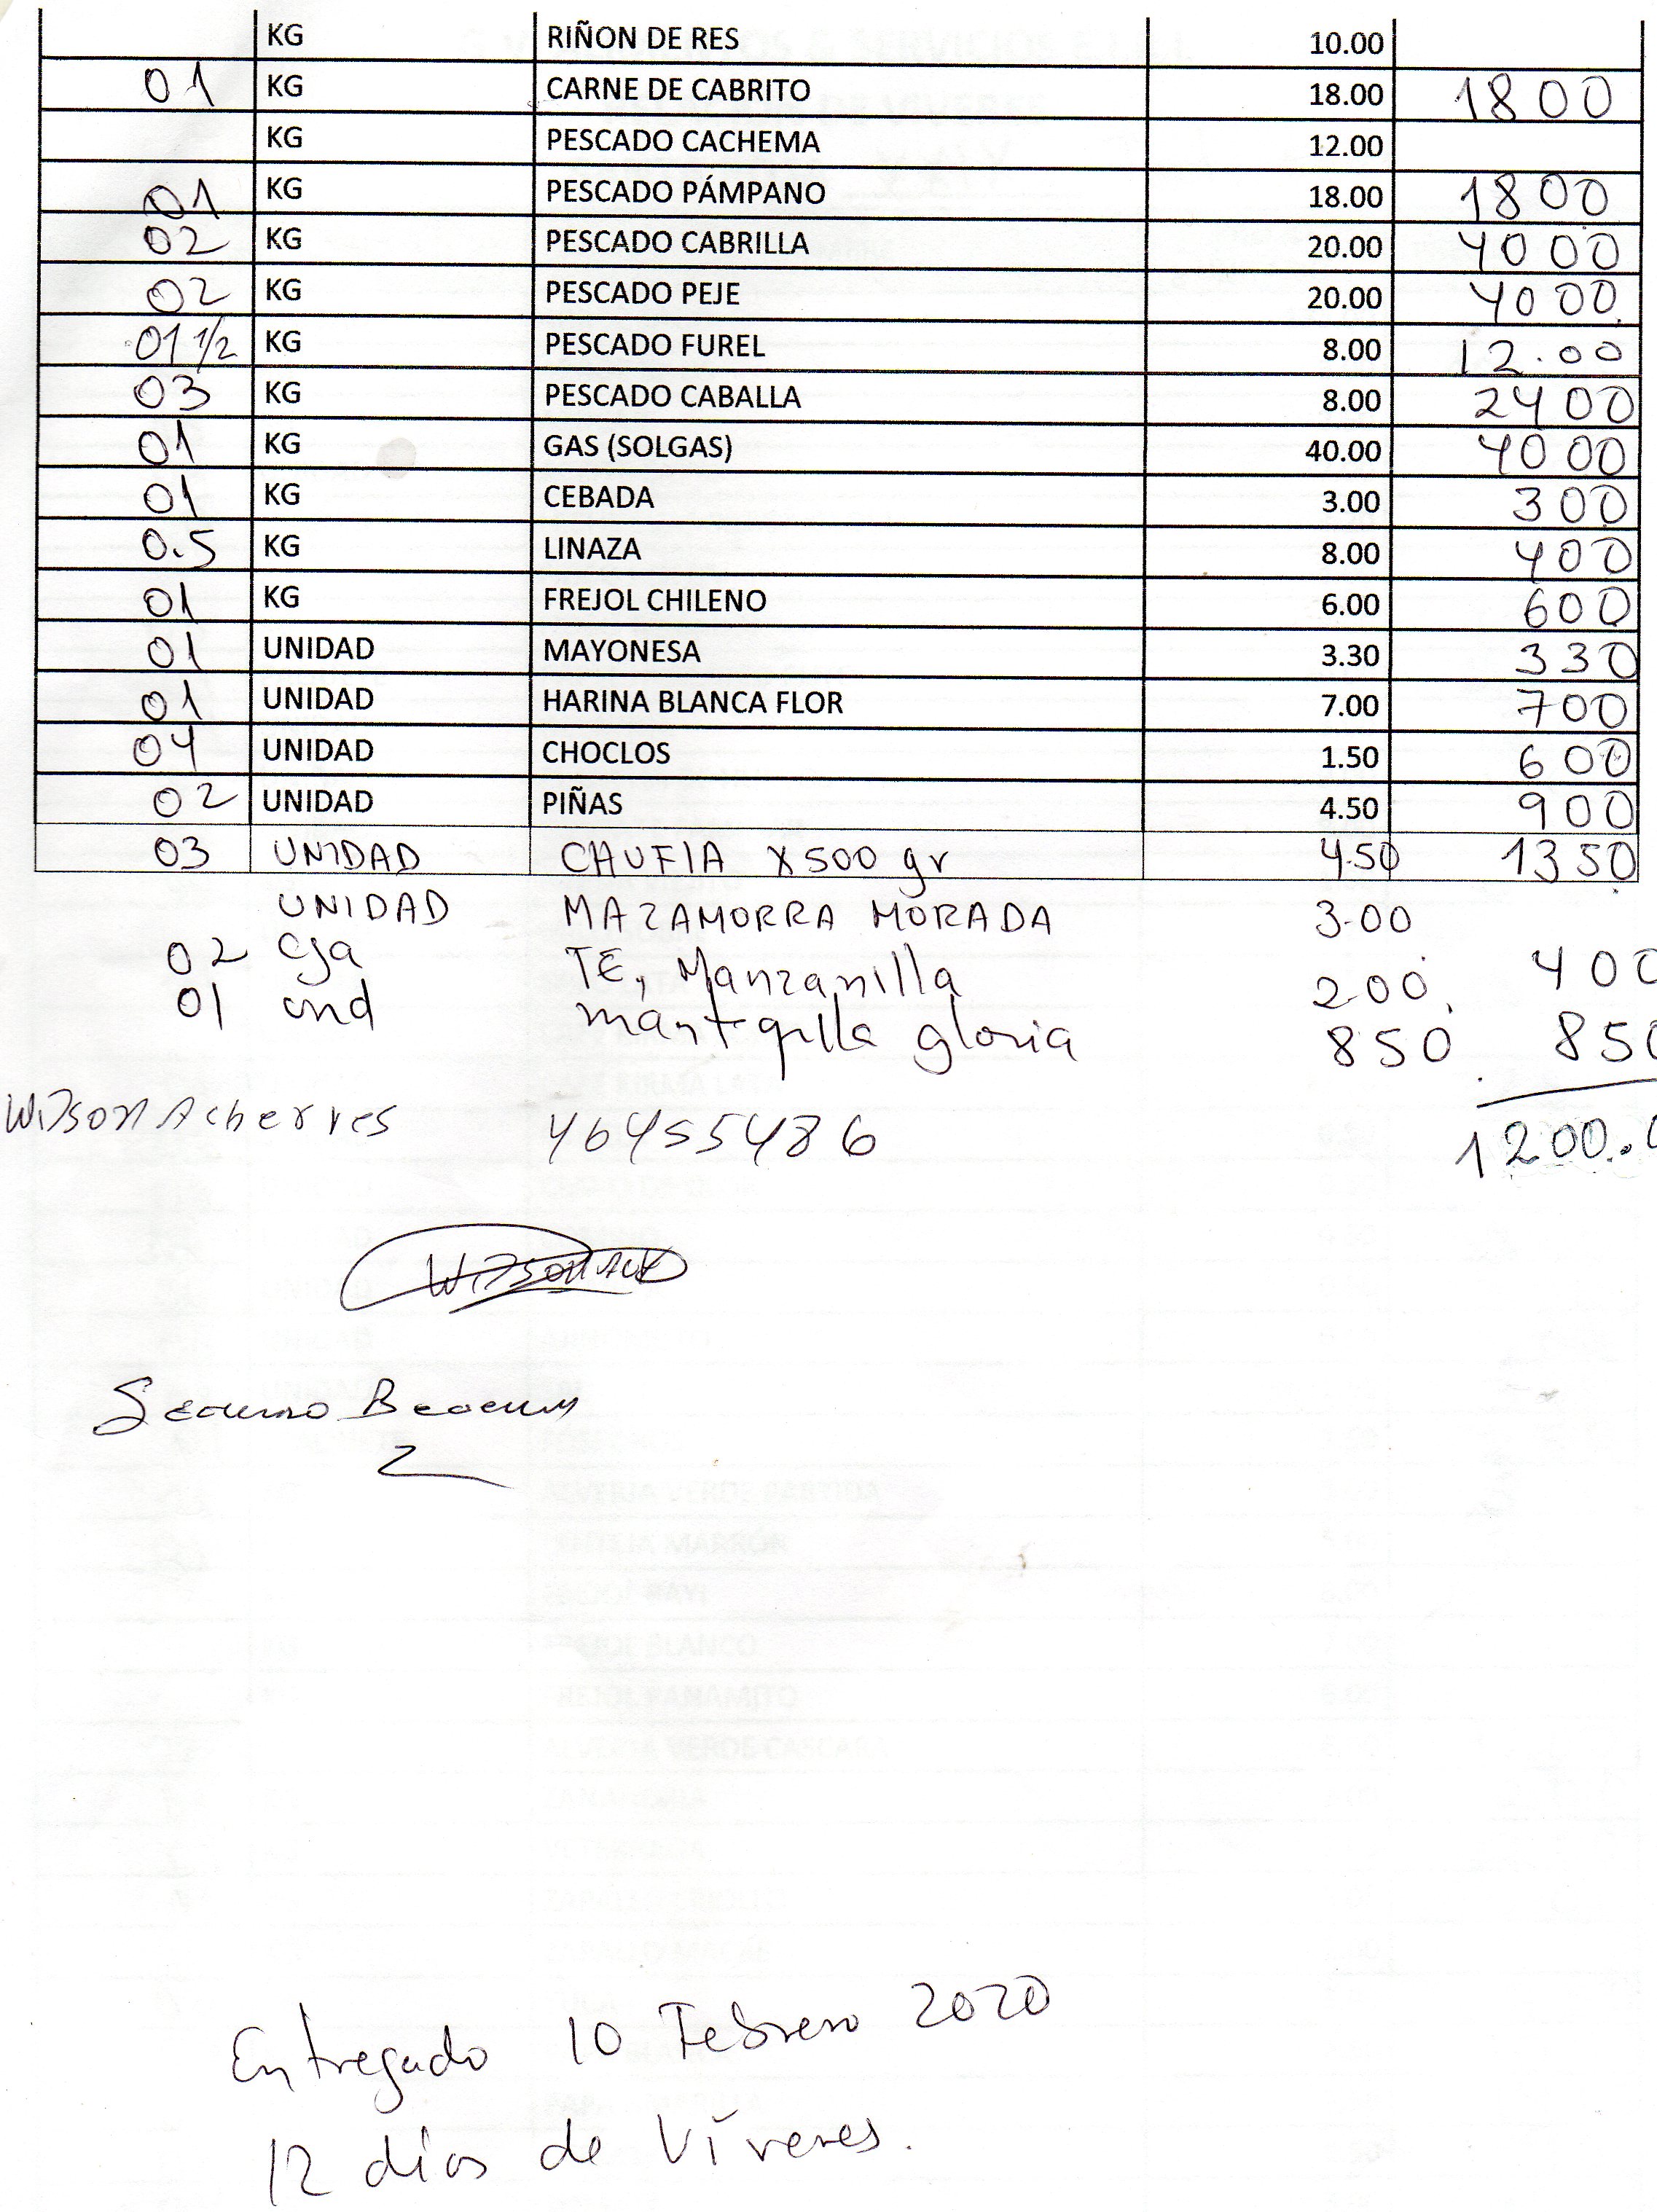 KG RIÑON DE RES 10.00
01 KG CARNE DE CABRITO 18.00 1800
KG PESCADO CACHEMA 12.00
01 KG PESCADO PÁMPANO 18.00 1800
02 KG PESCADO CABRILLA 20.00 4000
02 KG PESCADO PEJE 20.00 4000
01 1/2 KG PESCADO FUREL 8.00 12.00
03 KG PESCADO CABALLA 8.00 2400
01 KG GAS (SOLGAS) 40.00 4000
01 KG CEBADA 3.00 300
0.5 KG LINAZA 8.00 400
01 KG FREJOL CHILENO 6.00 600
01 UNIDAD MAYONESA 3.30 330
01 UNIDAD HARINA BLANCA FLOR 7.00 700
04 UNIDAD CHOCLOS 1.50 600
02 UNIDAD PIÑAS 4.50 900
03 UNIDAD CHUFIA X500 gr 4.50 1350
UNIDAD MAZAMORRA MORADA 3.00
02 Cja TE, Manzanilla 2.00 400
01 und mantequilla gloria 850 850
1200.0
Wilson Acherres 46455486
Wilson
Entregado 10 Febrero 2020
12 días de Víveres.